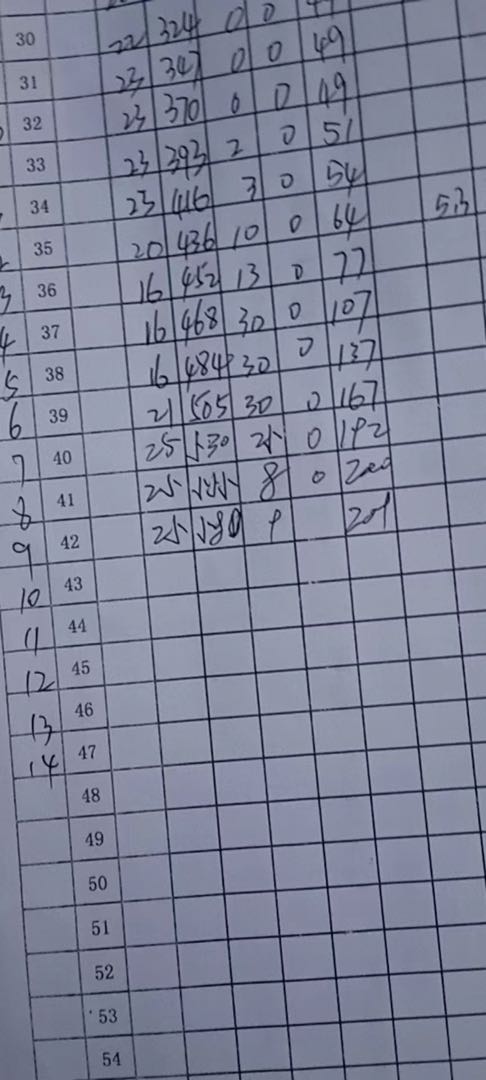 30 22 324 0 0
31 23 347 0 0 49
32 23 370 0 0 49
33 23 393 2 0 51
34 23 416 3 0 54
35 20 436 10 0 64 53
3 36 16 452 13 0 77
4 37 16 468 30 0 107
5 38 16 484 30 0 137
6 39 21 505 30 0 167
7 40 25 530 25 0 192
8 41 25 555 8 0 200
9 42 25 580
10 43
11 44
12 45
13 46
14 47
48
49
50
51
52
53
54